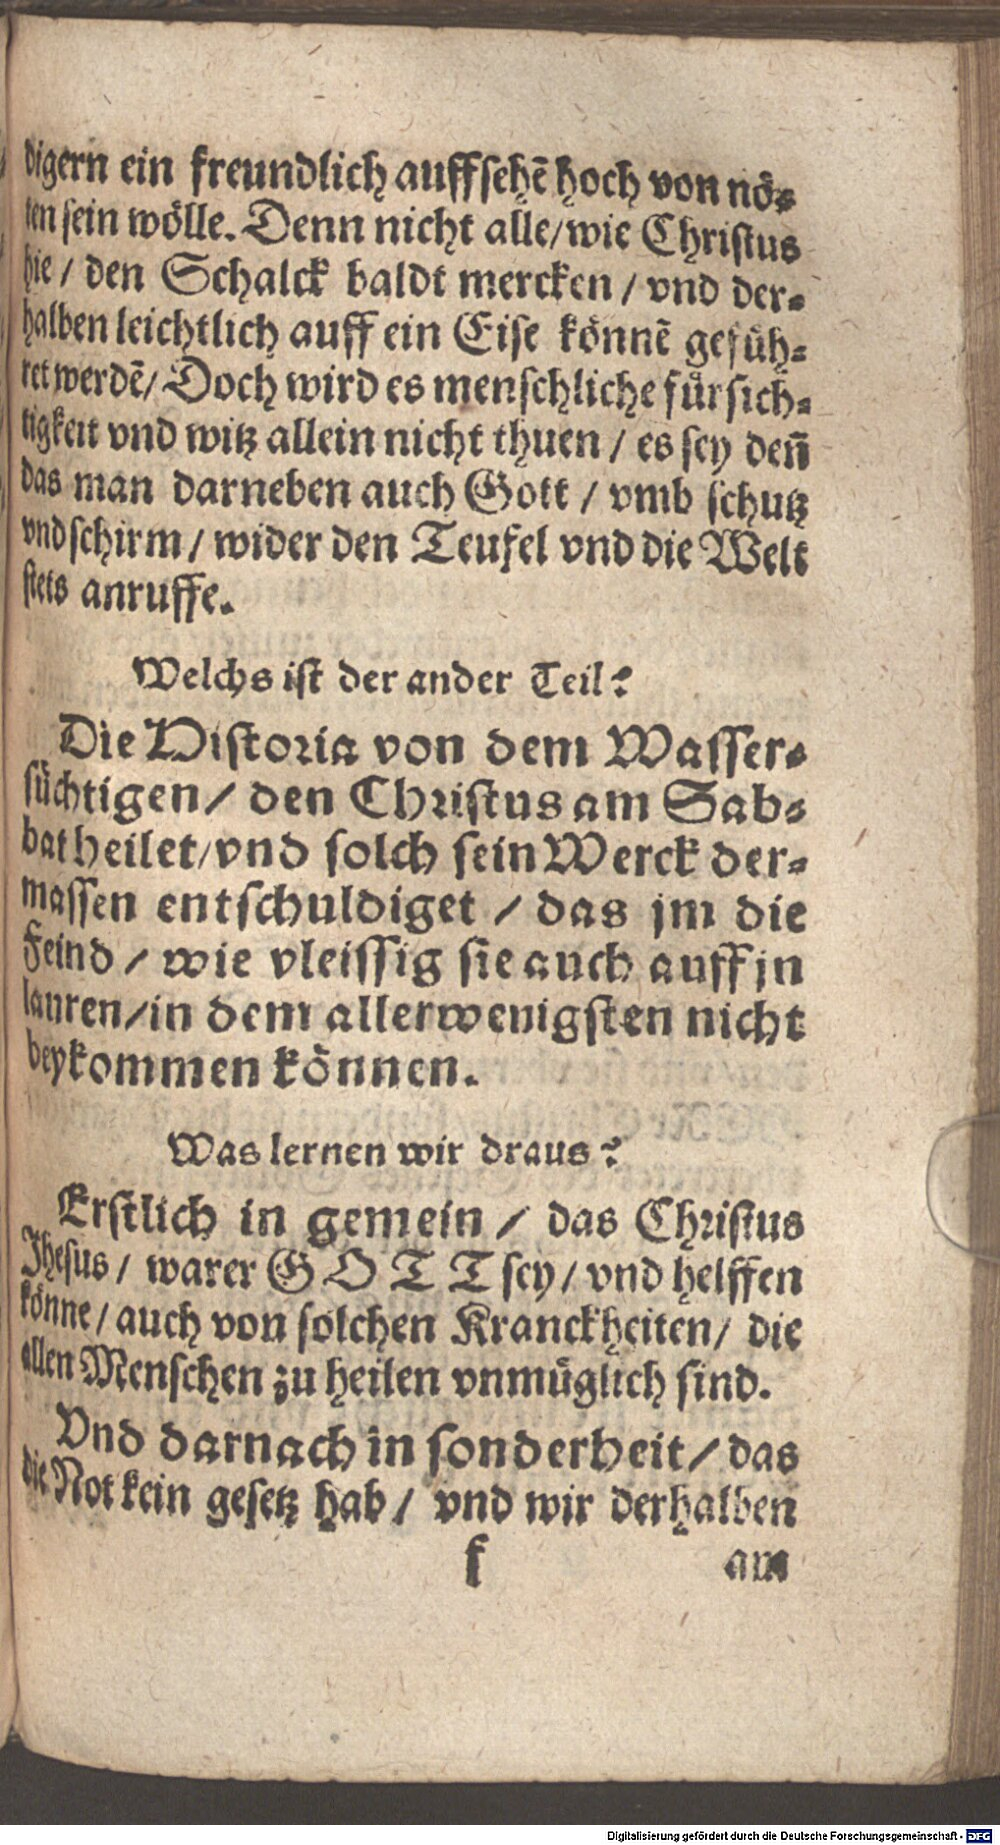 digern ein freundlich auffsehẽ hoch von nö⸗
ten sein wölle. Denn nicht alle/ wie Christus
hie / den Schalck baldt mercken / vnd der⸗
halben leichtlich auff ein Eise könnẽ gefüh⸗
ret werdẽ/ Doch wird es menschliche fürsich⸗
tigkeit vnd witz allein nicht thuen / es sey deñ
das man darneben auch Gott / vmb schutz
vnd schirm / wider den Teufel vnd die Welt
stets anruffe.
Welchs ist der ander Teil?
Die Historia von dem Wasser⸗
süchtigen/ den Christus am Sab⸗
bat heilet/ vnd solch sein Werck der⸗
massen entschuldiget / das jm die
Feind / wie vleissig sie auch auff jn
lauren/ in dem allerwenigsten nicht
beykommen können.
Was lernen wir draus?
Erstlich in gemein / das Christus
Jhesus / warer GOTT sey / vnd helffen
könne / auch von solchen Kranckheiten/ die
allen Menschen zu heilen vnmüglich sind.
Vnd darnach in sonderheit/ das
die Not kein gesetz hab / vnd wir derhalben
f am
Digitalisierung gefördert durch die Deutsche Forschungsgemeinschaft - DFG